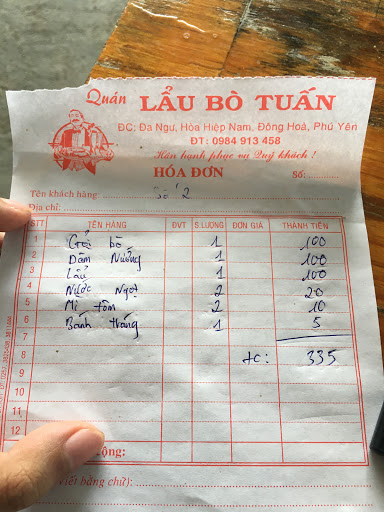 Quán LẨU BÒ TUẤN
ĐC: Đa Ngư, Hòa Hiệp Nam, Đông Hoà, Phú Yên
ĐT: 0984 913 458
Hân hạnh phục vụ Quý khách !
HÓA ĐƠN Số:
Tên khách hàng: Số 2
Địa chỉ:
STT TÊN HÀNG ĐVT S.LƯỢNG ĐƠN GIÁ THÀNH TIỀN
1 Gỏi bò 1 100
2 Dầm Nướng 1 100
3 Lẩu 1 100
4 Nước Ngọt 2 20
5 Mì tôm 2 10
6 Bánh tráng 1 5
7
8 tc: 335
9
10
11
12
Cộng:
(Viết bằng chữ):